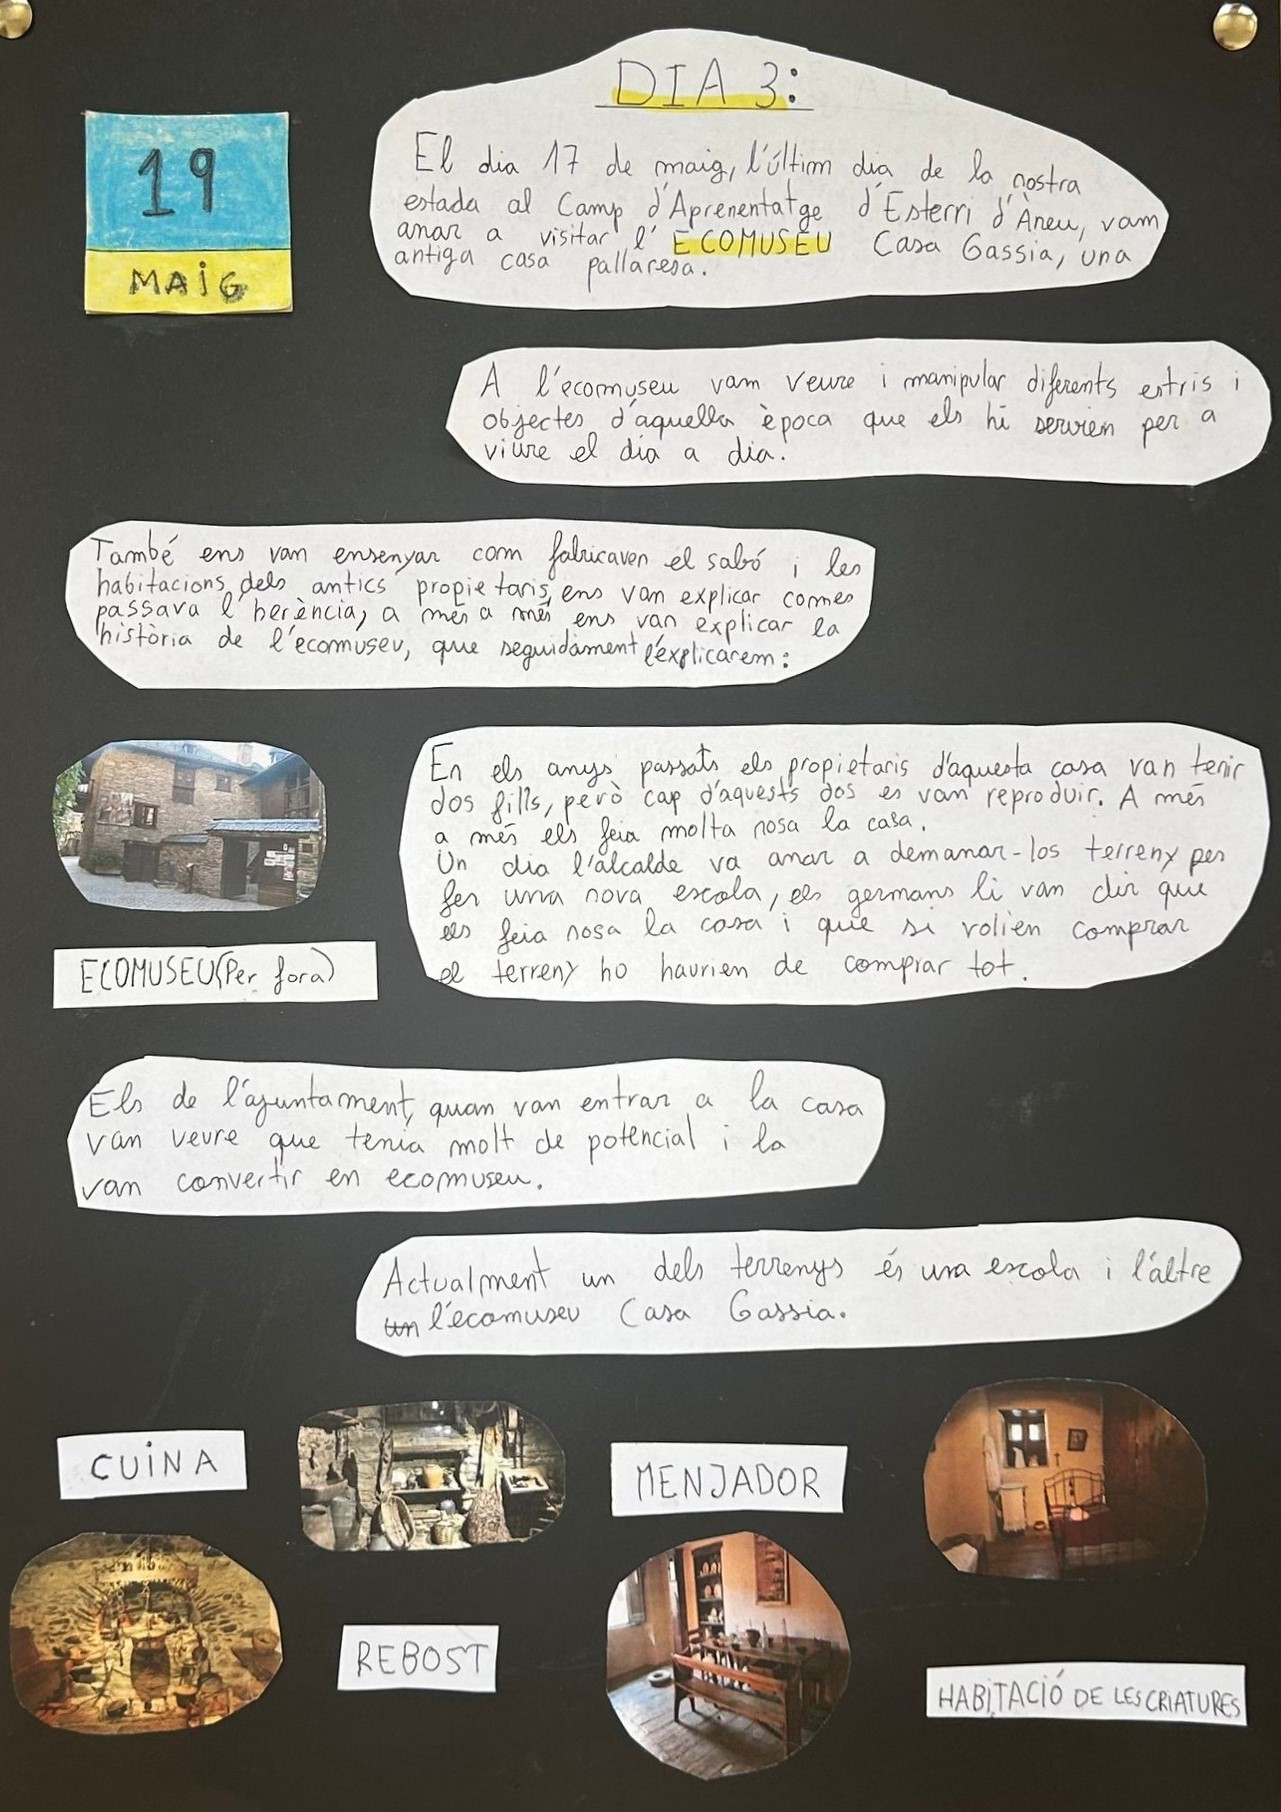 DIA 3:
19
MAIG
El dia 17 de maig, l'últim dia de la nostra
estada al Camp d'Aprenentatge d'Esterri d'Àneu, vam
anar a visitar l'ECOMUSEU Casa Gassia, una
antiga casa pallaresa.
A l'ecomuseu vam veure i manipular diferents estris i
objectes d'aquella època que els hi servien per a
viure el dia a dia.
També ens van ensenyar com fabricaven el sabó i les
habitacions dels antics propietaris, ens van explicar comes
passava l'herència, a més a més ens van explicar la
història de l'ecomuseu, que seguidament l'explicarem:
En els anys passats els propietaris d'aquesta casa van tenir
dos fills, però cap d'aquests dos es van reproduir. A més
a més els feia molta nosa la casa.
Un dia l'alcalde va anar a demanar-los terreny per
fer una nova escola, els germans li van dir que
els feia nosa la casa i que si volien comprar
el terreny ho haurien de comprar tot.
ECOMUSEU(Per fora)
Els de l'ajuntament, quan van entrar a la casa
van veure que tenia molt de potencial i la
van convertir en ecomuseu.
Actualment un dels terrenys és una escola i l'altre
un l'ecomuseu Casa Gassia.
CUINA
MENJADOR
REBOST
HABITACIÓ DE LES CRIATURES